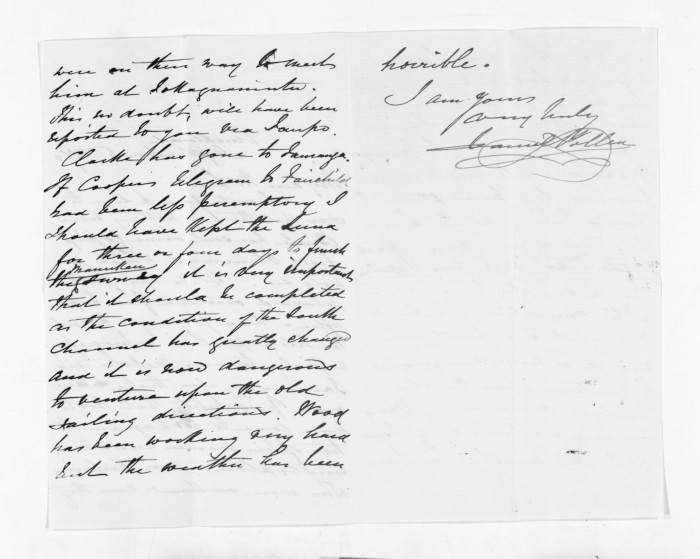 were on their way to meet
him at Tokaanuintu.
This no doubt, will have been
reported to you via Taupo.
Clarke has gone to Tauranga.
If Coopers telegram to Fairchild
had been less peremptory I
should have Kept the Luna
for three or four days to finish
the Manukau survey it is very important
that it should be completed
as the condition of the South
Channel has greatly changed
and it is now dangerous
to venture upon the old
sailing directions. Wood
has been working very hard
but the weather has been
horrible.
I am yours
very truly
Daniel Pollen